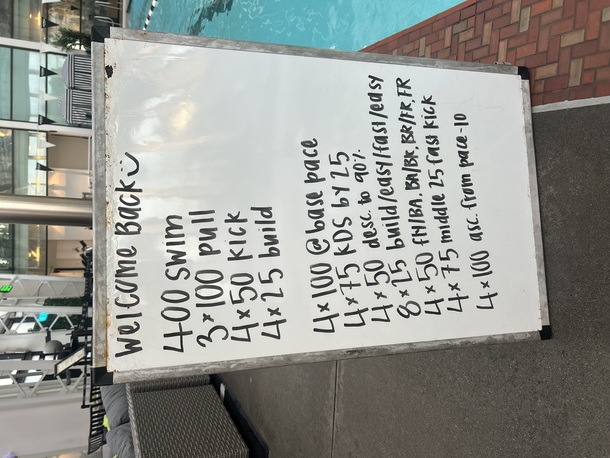 Welcome Back
400 swim
3x100 pull
4x50 kick
4x25 build
4x100 @base pace
4x75 KDS by 25
4x50 desc. to 90%
8x25 build/easy/fast/easy
4x50 fly/BA, BA/BR, BR/FR, FR
4x75 middle 25 fast kick
4x100 asc. from pace-10